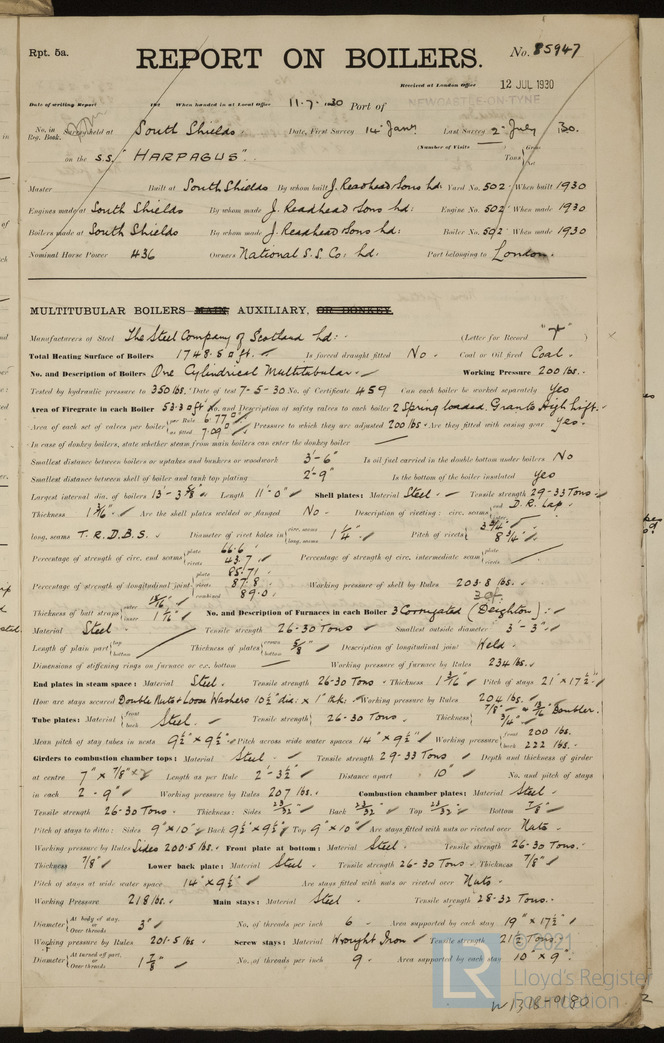 Rpt. 5a.
REPORT ON BOILERS.
No. 85947
Received at London Office
12 JUL 1930
Date of writing Report 193 When handed in at Local Office 11-7-1930 Port of NEWCASTLE-ON-TYNE
No. in Reg. Book. Survey held at South Shields Date, First Survey 14 Jany Last Survey 2 July 1930.
(Number of Visits
on the S.S. "HARPAGUS". Tons { Gross Net
Master Built at South Shields By whom built J. Readhead Sons Ld. Yard No. 502 When built 1930
Engines made at South Shields By whom made J. Readhead Sons Ld: Engine No. 502 When made 1930
Boilers made at South Shields By whom made J. Readhead Sons Ld: Boiler No. 502 When made 1930
Nominal Horse Power 436 Owners National S.S. Co: Ld: Port belonging to London.
MULTITUBULAR BOILERS MAIN, AUXILIARY, OR DONKEY.
Manufacturers of Steel The Steel Company of Scotland Ld: (Letter for Record
Total Heating Surface of Boilers 1748.5 ▫ ft. Is forced draught fitted No. Coal or Oil fired Coal.
No. and Description of Boilers One Cylindrical Multitubular. Working Pressure 200 lbs.
Tested by hydraulic pressure to 350 lbs. Date of test 7-5-30 No. of Certificate 459 Can each boiler be worked separately Yes
Area of Firegrate in each Boiler 53.3 ▫ ft No. and Description of safety valves to each boiler 2 Spring loaded. Grants High Lift.
Area of each set of valves per boiler { per Rule 6.77 ▫" as fitted 7.09 ▫" Pressure to which they are adjusted 200 lbs. Are they fitted with easing gear Yes.
In case of donkey boilers, state whether steam from main boilers can enter the donkey boiler
Smallest distance between boilers or uptakes and bunkers or woodwork 3'-6" Is oil fuel carried in the double bottom under boilers No
Smallest distance between shell of boiler and tank top plating 2'-9" Is the bottom of the boiler insulated Yes
Largest internal dia. of boilers 13'-3 5/8" Length 11'-0" Shell plates: Material Steel Tensile strength 29-33 Tons
Thickness 1 3/16" Are the shell plates welded or flanged No. Description of riveting: circ. seams { end D.R. Lap. inter.
long. seams T.R.D.B.S. Diameter of rivet holes in { circ. seams long. seams 1 1/4" Pitch of rivets { 3 3/4" 8 3/4"
Percentage of strength of circ. end seams { plate 66.6 rivets 43.7 Percentage of strength of circ. intermediate seam { plate rivets
Percentage of strength of longitudinal joint { plate 85.71 rivets 87.8 combined 89.0 Working pressure of shell by Rules 203.8 lbs.
Thickness of butt straps { outer 15/16" inner 1 1/16" No. and Description of Furnaces in each Boiler 3 Corrugated (Deighton)
Material Steel. Tensile strength 26-30 Tons Smallest outside diameter 3'-3"
Length of plain part { top bottom Thickness of plates { crown bottom 5/8" Description of longitudinal joint Weld
Dimensions of stiffening rings on furnace or c.c. bottom Working pressure of furnace by Rules 234 lbs.
End plates in steam space: Material Steel. Tensile strength 26-30 Tons Thickness 1 3/16" Pitch of stays 21" x 17 1/2"
How are stays secured Double Nuts & Loose Washers 10 1/2" dia: x 1" thk. Working pressure by Rules 204 lbs.
Tube plates: Material { front back Steel. Tensile strength { 26-30 Tons. Thickness { 7/8" 3/4" Doubler.
Mean pitch of stay tubes in nests 9 1/2" x 9 1/2" Pitch across wide water spaces 14" x 9 1/2" Working pressure { front 200 lbs. back 222 lbs.
Girders to combustion chamber tops: Material Steel Tensile strength 29-33 Tons Depth and thickness of girder
at centre 7" x 7/8" x 2 Length as per Rule 2'-3 1/2" Distance apart 10" No. and pitch of stays
in each 2 - 9" Working pressure by Rules 207 lbs. Combustion chamber plates: Material Steel.
Tensile strength 26-30 Tons. Thickness: Sides 23/32" Back 23/32" Top 23/32" Bottom 7/8"
Pitch of stays to ditto: Sides 9" x 10" Back 9 1/2" x 9 1/2" Top 9" x 10" Are stays fitted with nuts or riveted over Nuts
Working pressure by Rules Sides 200.5 lbs. Front plate at bottom: Material Steel. Tensile strength 26-30 Tons.
Thickness 7/8" Lower back plate: Material Steel Tensile strength 26-30 Tons Thickness 7/8"
Pitch of stays at wide water space 14" x 9 1/2" Are stays fitted with nuts or riveted over Nuts
Working Pressure 218 lbs. Main stays: Material Steel Tensile strength 28-32 Tons.
Diameter { At body of stay, or Over threads 3" No. of threads per inch 6 Area supported by each stay 19" x 17 1/2"
Working pressure by Rules 201.5 lbs Screw stays: Material Wrought Iron Tensile strength 21 1/2 Tons
Diameter { At turned off part, or Over threads 1 7/8" No. of threads per inch 9 Area supported by each stay 10" x 9"
© 2021
LR
Lloyd's Register
Foundation
W1318-0180